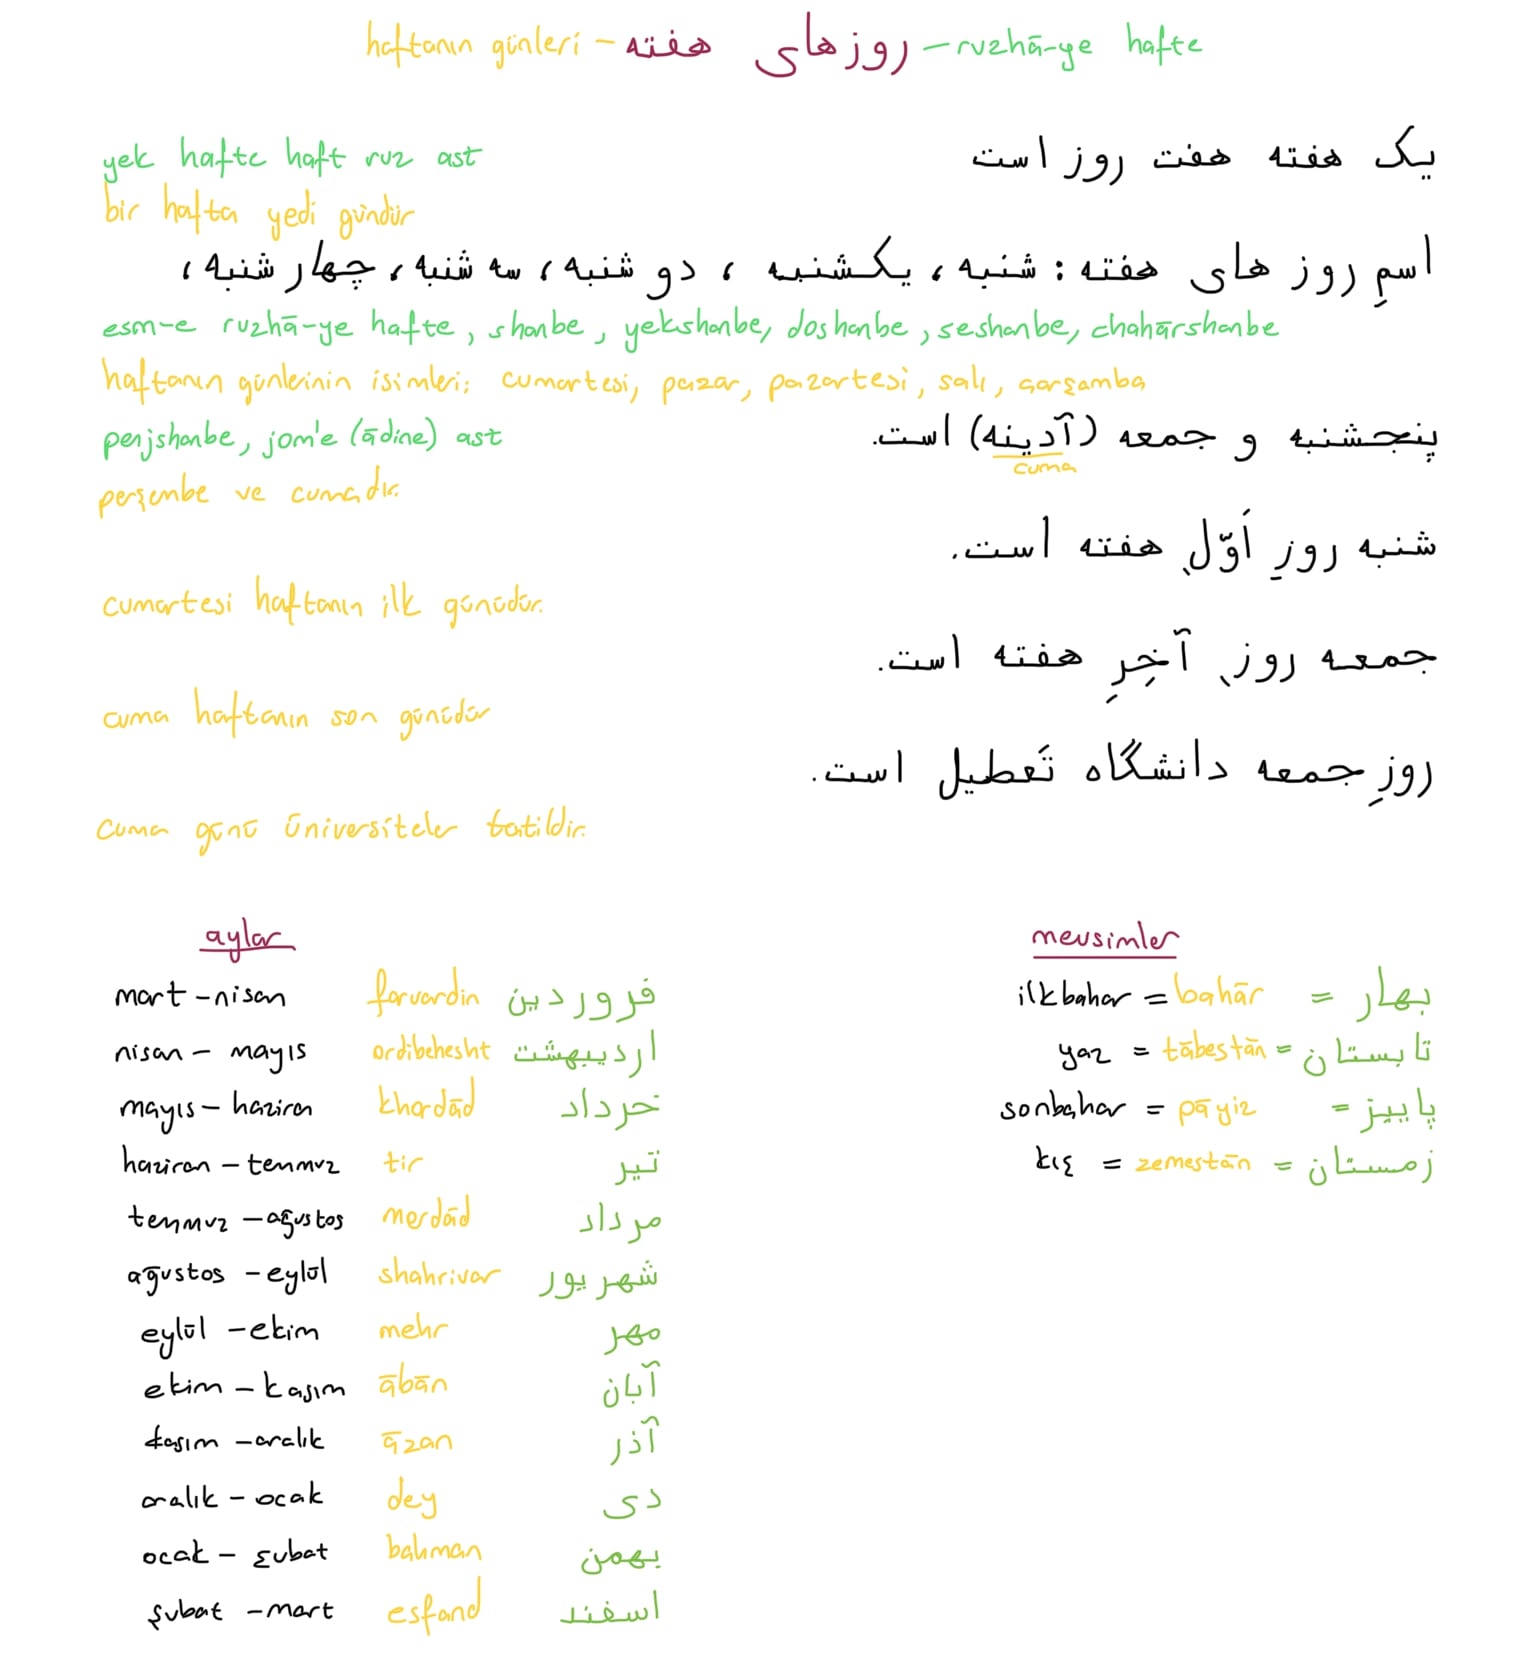 haftanın günleri – روزهای هفته – ruzhā-ye hafte
یک هفته هفت روز است
yek hafte haft ruz ast
bir hafta yedi gündür
اسمِ روز های هفته : شنبه ، یکشنبه ، دو شنبه ، سه شنبه ، چهار شنبه ،
esm-e ruzhā-ye hafte, shanbe, yekshanbe, doshanbe, seshanbe, chahārshanbe
haftanın günlerinin isimleri; cumartesi, pazar, pazartesi, salı, çarşamba
پنجشنبه و جمعه (آدینه) است.
cuma
penjshanbe, jom'e (ādine) ast
perşembe ve cumadır.
شنبه روزِ اَوّلِ هفته است.
cumartesi haftanın ilk günüdür.
جمعه روزِ آخِرِ هفته است.
cuma haftanın son günüdür
روزِ جمعه دانشگاه تَعطیل است.
cuma günü üniversiteler tatildir.
aylar
mart – nisan farvardin فروردین
nisan – mayıs ordibehesht اردیبهشت
mayıs – haziran khordād خرداد
haziran – temmuz tir تیر
temmuz – ağustos merdād مرداد
ağustos – eylül shahrivar شهریور
eylül – ekim mehr مهر
ekim – kasım ābān آبان
kasım – aralık āzan آذر
aralık – ocak dey دی
ocak – şubat bahman بهمن
şubat – mart esfand اسفند
mevsimler
ilkbahar = bahār = بهار
yaz = tābestān = تابستان
sonbahar = pāyiz = پاییز
kış = zemestān = زمستان